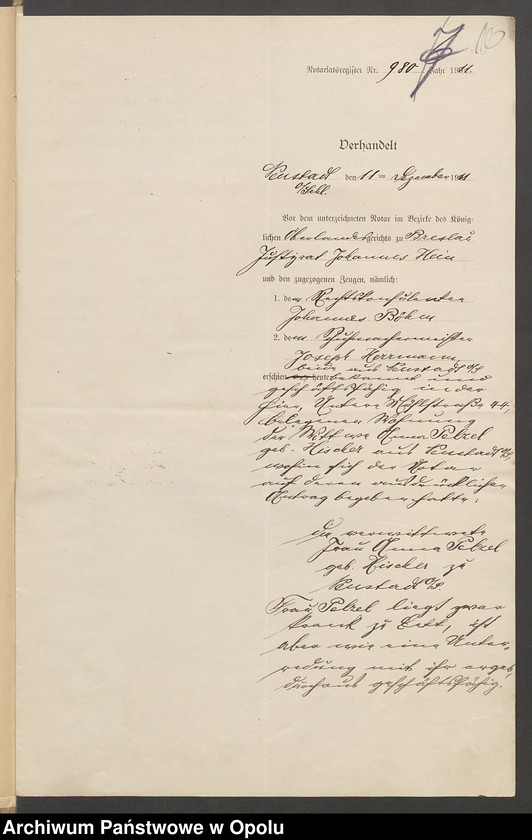 7 10
Notariatsregister Nr. 980 Jahr 1911.
Verhandelt
Neustadt den 11ten Dezember 1911
O/Schl.
Vor dem unterzeichneten Notar im Bezirke des König-
lichen Oberlandesgerichts zu Breslau
Justizrat Johannes Hein
und den zugezogenen Zeugen, nämlich:
1. dem Rechtskonsulenten
Johannes Böhm
2. dem Schuhmachermeister
Joseph Herrmann,
beide aus Neustadt O/S
erschien heute bekannt und
geschäftsfähig in der
hier, Untere Mühlstraße 44,
belegenen Wohnung
der Witwe Anna Pelzel
geb. Hischer aus Neustadt O/S,
wohin sich der Notar
auf deren ausdrücklichen
Antrag begeben hatte:
die verwittwete
Frau Anna Pelzel
geb. Hischer zu
Neustadt O/S.
Frau Pelzel liegt zwar
krank zu Bett, ist
aber wie eine Unter-
redung mit ihr ergab,
durchaus geschäftsfähig.
Archiwum Państwowe w Opolu